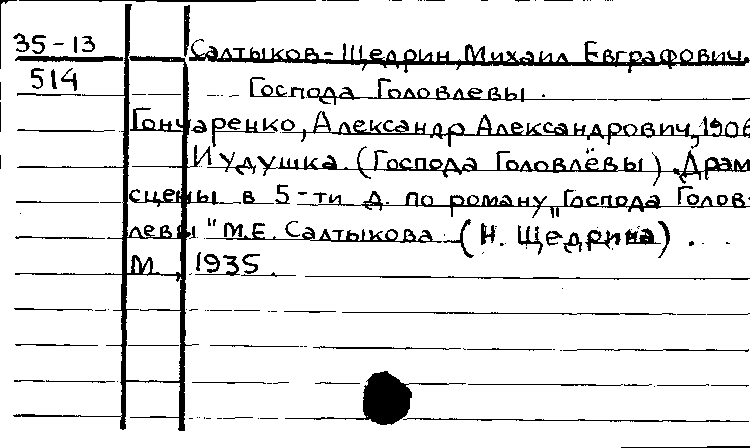 35-13 Салтыков-Щедрин, Михаил Евграфович.
514 Господа Головлевы.
Гончаренко, Александр Александрович, 1906
Иудушка. (Господа Головлёвы). Драм
сцены в 5-ти д. по роману „Господа Голов-
левы" М.Е. Салтыкова (Н. Щедрина).
М., 1935.